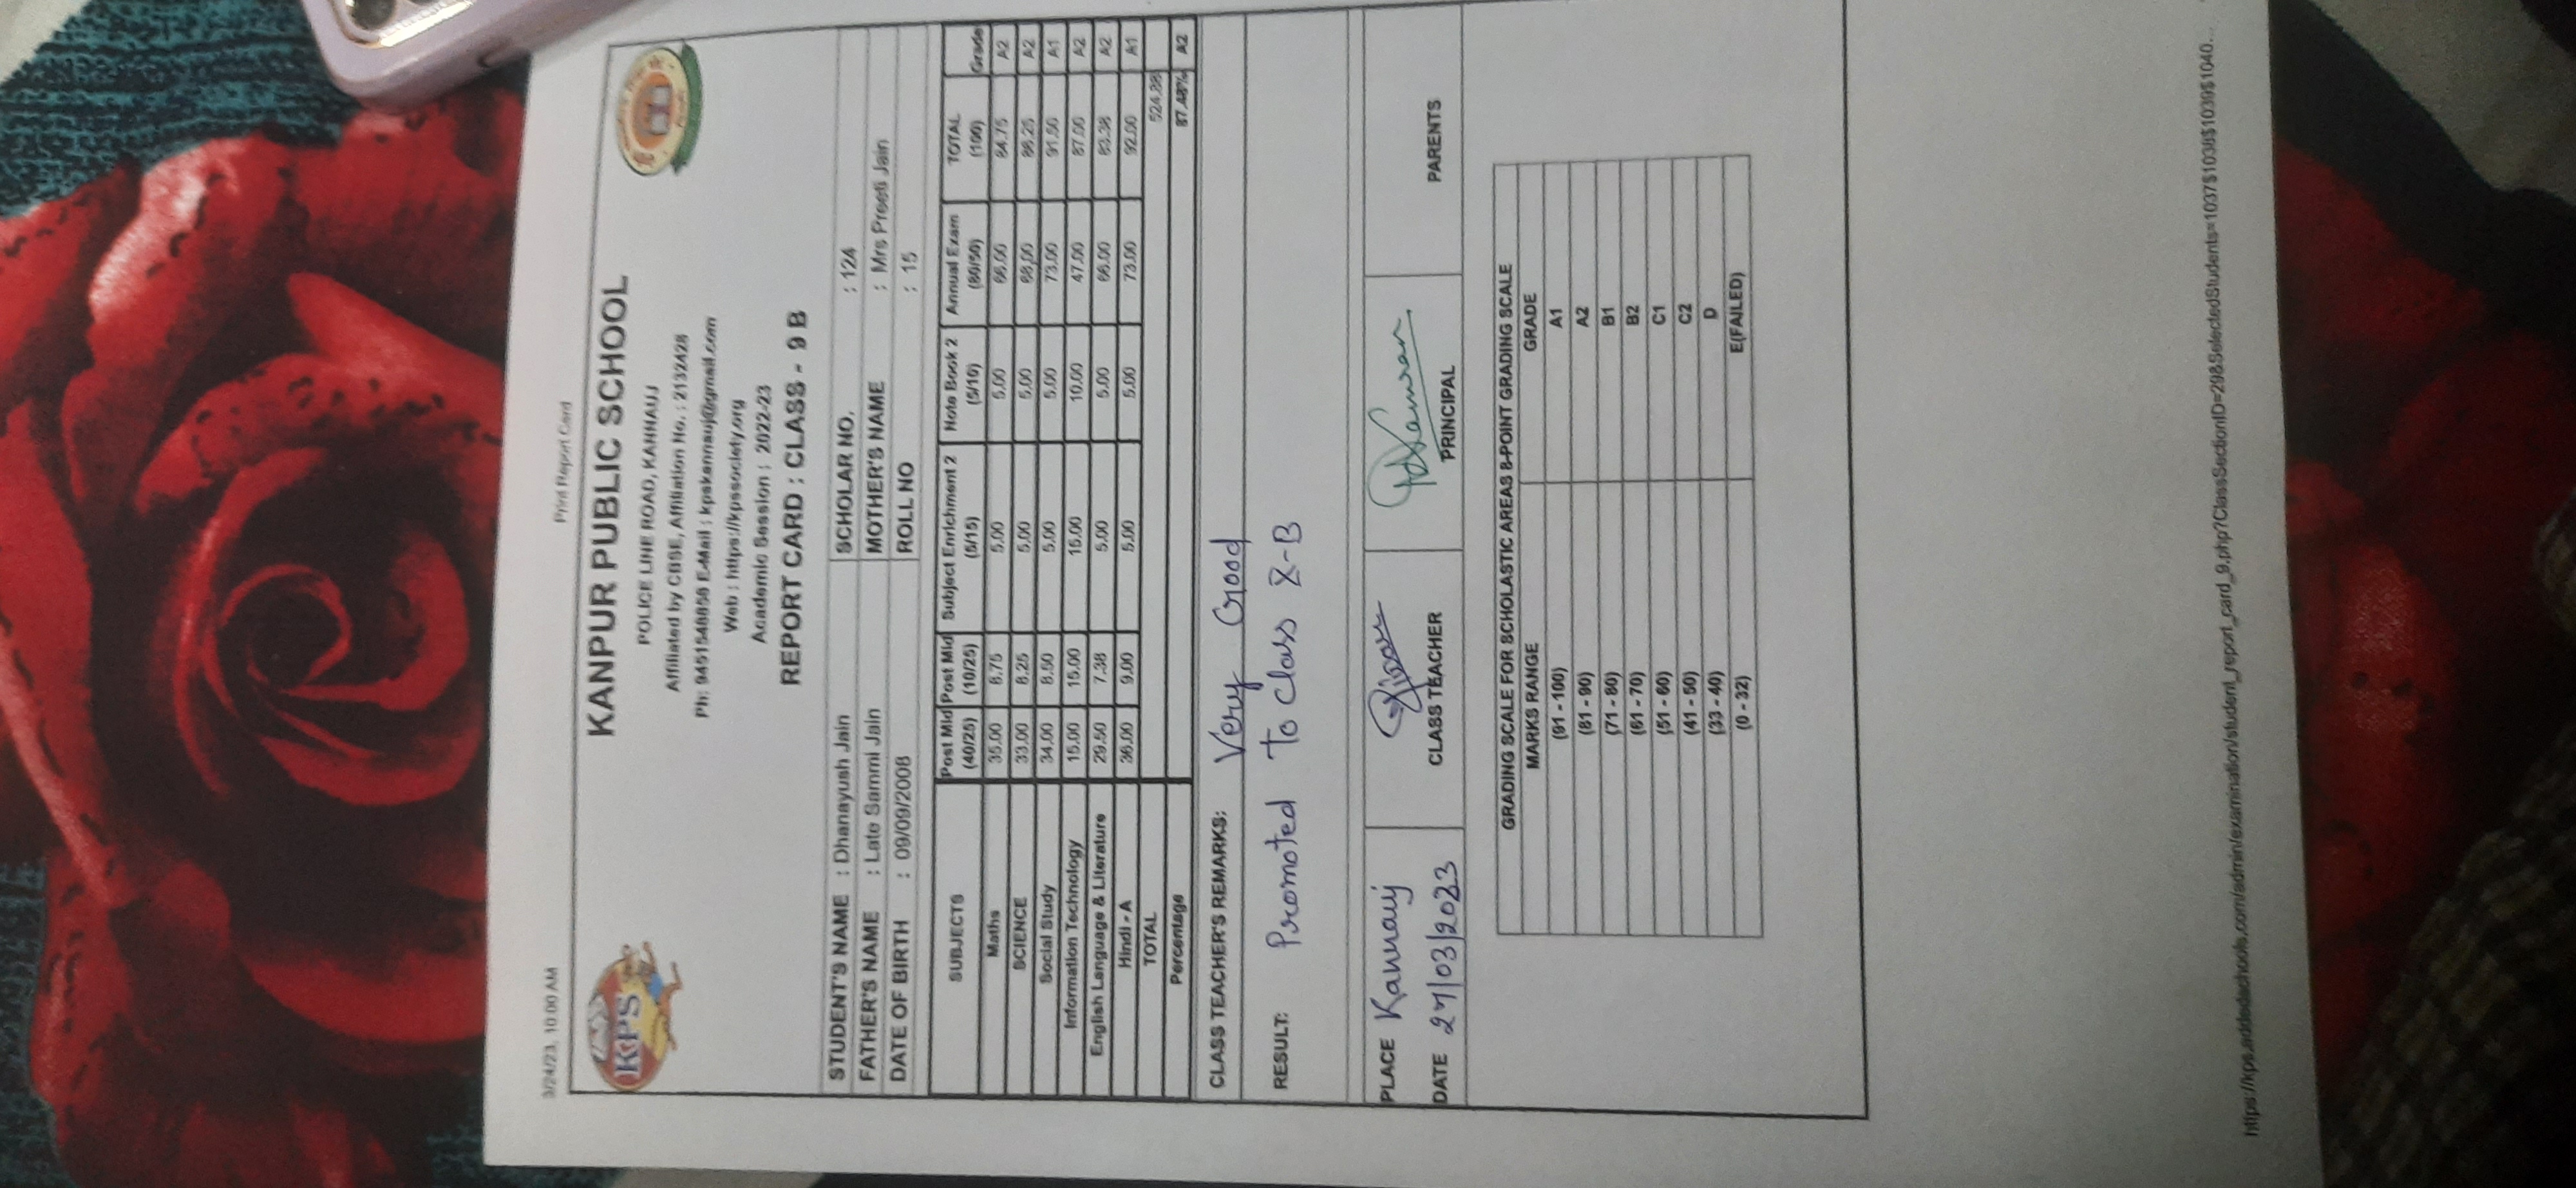 3/24/23, 10:00 AM Print Report Card
KPS
KANPUR PUBLIC SCHOOL
POLICE LINE ROAD, KANNAUJ
Affiliated by CBSE, Affiliation No. : 2132428
Ph: 9451548858 E-Mail : kpskannauj@gmail.com
Web : https://kpssociety.org
Academic Session : 2022-23
REPORT CARD : CLASS - 9 B
STUDENT'S NAME : Dhanayush Jain SCHOLAR NO. : 124
FATHER'S NAME : Late Sanmi Jain MOTHER'S NAME : Mrs Preeti Jain
DATE OF BIRTH : 09/09/2008 ROLL NO : 15
SUBJECTS Post Mid (40/25) Post Mid (10/25) Subject Enrichment 2 (5/15) Note Book 2 (5/10) Annual Exam (80/50) TOTAL (100) Grade
Maths 35.00 8.75 5.00 5.00 66.00 84.75 A2
SCIENCE 33.00 8.25 5.00 5.00 68.00 86.25 A2
Social Study 34.00 8.50 5.00 5.00 73.00 91.50 A1
Information Technology 15.00 15.00 15.00 10.00 47.00 87.00 A2
English Language & Literature 29.50 7.38 5.00 5.00 66.00 83.38 A2
Hindi - A 36.00 9.00 5.00 5.00 73.00 92.00 A1
TOTAL 524.88
Percentage 87.48% A2
CLASS TEACHER'S REMARKS: Very Good
RESULT: Promoted to Class X-B
PLACE Kannauj
DATE 27/03/2023 CLASS TEACHER PRINCIPAL PARENTS
GRADING SCALE FOR SCHOLASTIC AREAS 8-POINT GRADING SCALE
MARKS RANGE GRADE
(91 - 100) A1
(81 - 90) A2
(71 - 80) B1
(61 - 70) B2
(51 - 60) C1
(41 - 50) C2
(33 - 40) D
(0 - 32) E(FAILED)
https://kps.addedschools.com/admin/examination/student_report_card_9.php?ClassSectionID=29&SelectedStudents=1037$1038$1039$1040...